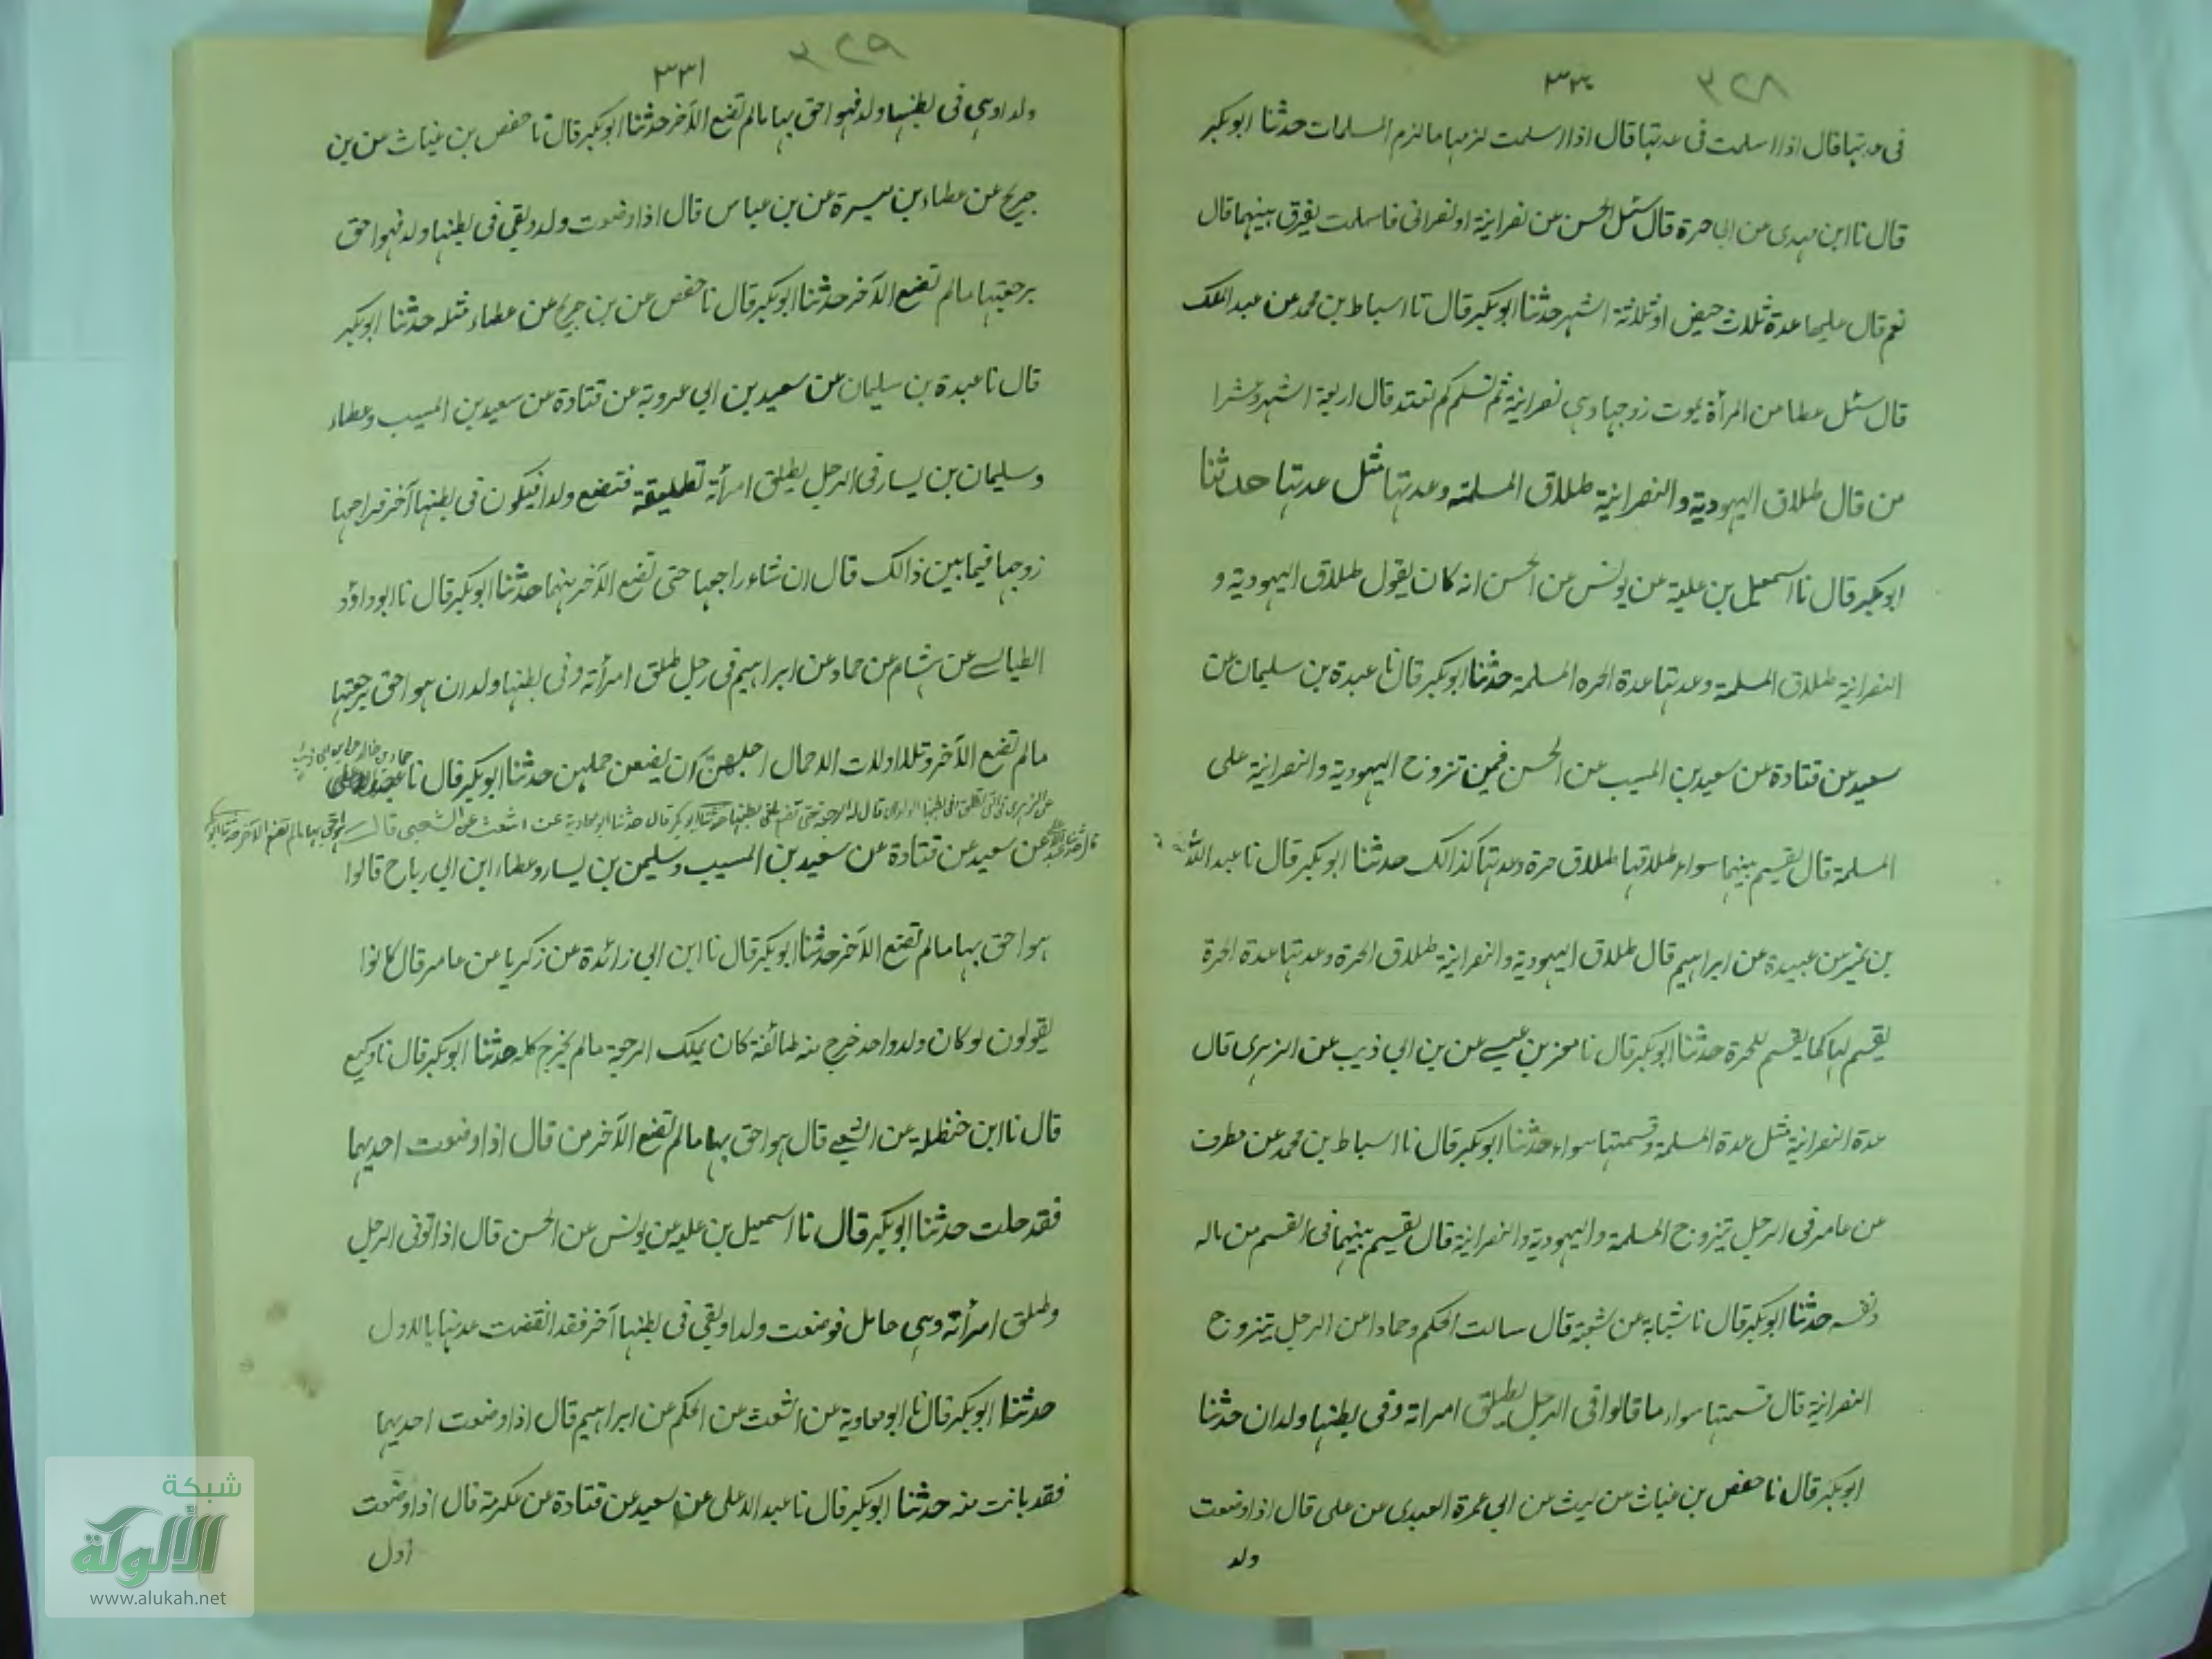 ٣٢٨
٣٣٠
فى عدتها قال اذا اسلمت فى عدتها قال اذا اسلمت لزمها ما لزم المسلمات حدثنا ابوبكر
قال نا ابن مهدى عن ابى حرة قال سئل الحسن عن نصرانية او نصرانى فاسلمت يفرق بينهما قال
نعم قال عليها عدة ثلاث حيض او ثلاثة اشهر حدثنا ابوبكر قال نا اسباط بن محمد عن عبد الملك
قال سئل عطا عن المرأة يموت زوجها وهى نصرانية ثم تسلم كم تعتد قال اربعة اشهر وعشرا
من قال طلاق اليهودية والنصرانية طلاق المسلمة وعدتها مثل عدتها حدثنا
ابوبكر قال نا اسمعيل بن علية عن يونس عن الحسن انه كان يقول طلاق اليهودية و
النصرانية طلاق المسلمة وعدتها عدة الحره المسلمة حدثنا ابوبكر قال نا عبدة بن سليمان عن
سعيد عن قتادة عن سعيد بن المسيب عن الحسن فمين تزوج اليهودية والنصرانية على
المسلمة قال يقسم بينهما سواء طلاقها طلاق حرة وعدتها كذالك حدثنا ابوبكر قال نا عبد الله
بن نمير عن عبيدة عن ابراهيم قال طلاق اليهودية والنصرانية طلاق الحرة وعدتها عدة الحرة
يقسم لها كما يقسم للحرة حدثنا ابوبكر قال نا معن بن عيسے عن بن ابى ذيب عن الزهرى قال
عدة النصرانية مثل عدة المسلمة وقسمتها سواء حدثنا ابوبكر قال نا اسباط بن محمد عن مطرف
عن عامر فى الرجل يتزوج المسلمة واليهودية والنصرانية قال يقسم بينهما فى القسم من ماله
ونفسه حدثنا ابوبكر قال نا شبابة عن شعبة قال سالت الحكم وحمادا عن الرجل يتزوج
النصرانية قال قسمتها سواء ما قالوا فى الرجل يطلق امراته وفى بطنها ولدان حدثنا
ابوبكر قال نا حفص بن غياث عن ليث عن ابى عمرة العبدى عن على قال اذا وضعت
ولد
٣٢٩
٣٣١
ولدا وهى فى بطنها ولد فهو احق بها مالم تضع الآخر حدثنا ابوبكر قال نا حفص بن غياث عن بن
جريج عن عطاء بن ميسرة عن بن عباس قال اذا وضعت ولد وبقى فى بطنها ولد فهو احق
برجعتها مالم تضع الآخر حدثنا ابوبكر قال نا حفص عن بن جريج عن عطاء مثله حدثنا ابوبكر
قال نا عبدة بن سليمان عن سعيد بن ابى عروبة عن قتادة عن سعيد بن المسيب وعطاء
وسليمان بن يسار فى الرجل يطلق امرأته تطليقة فتضع ولدا فيكون فى بطنها آخر فراجعها
زوجها فيما بين ذالك قال ان شاء راجعها حتى تضع الآخر منهما حدثنا ابوبكر قال نا ابو داؤد
الطيالسے عن هشام عن حماد عن ابراهيم فى رجل طلق امرأته وفى بطنها ولدان هو احق برجعتها
مالم تضع الآخر وتلا اولات الاحمال اجلهن ان يضعن حملهن حدثنا ابوبكر قال نا عبد الاعلى
حماد بن خالد عن ابن ابى ذيب
عن الزهرى قال له الرجعة حتى تضع حدثنا ابوبكر قال حدثنا ابو معاوية عن اشعث عن الشعبى قال هو احق بها مالم تضع الآخر حدثنا ابوبكر
عن سعيد عن قتادة عن سعيد بن المسيب وسليمن بن يسار وعطاء ابن ابى رباح قالوا
هو احق بها مالم تضع الآخر حدثنا ابوبكر قال نا ابن ابى زائدة عن زكريا عن عامر قال كانوا
يقولون لو كان ولد واحد خرج منه طائفة كان يملك الرجعة مالم يخرج كله حدثنا ابوبكر قال نا وكيع
قال نا ابن حنظلة عن الشعبے قال هو احق بها مالم تضع الآخر من قال اذا وضعت احديهما
فقد حلت حدثنا ابوبكر قال نا اسمعيل بن علية عن يونس عن الحسن قال اذا توفى الرجل
وطلق امرأته وهى حامل فوضعت ولدا وبقى فى بطنها آخر فقد انقضت عدتها بالاول
حدثنا ابوبكر قال نا ابو معاوية عن اشعث عن الحكم عن ابراهيم قال اذا وضعت احديهما
فقد بانت منه حدثنا ابوبكر قال نا عبد الاعلى عن سعيد عن قتادة عن عكرمة قال اذا وضعت
اول
شبكة
الألوكة
www.alukah.net